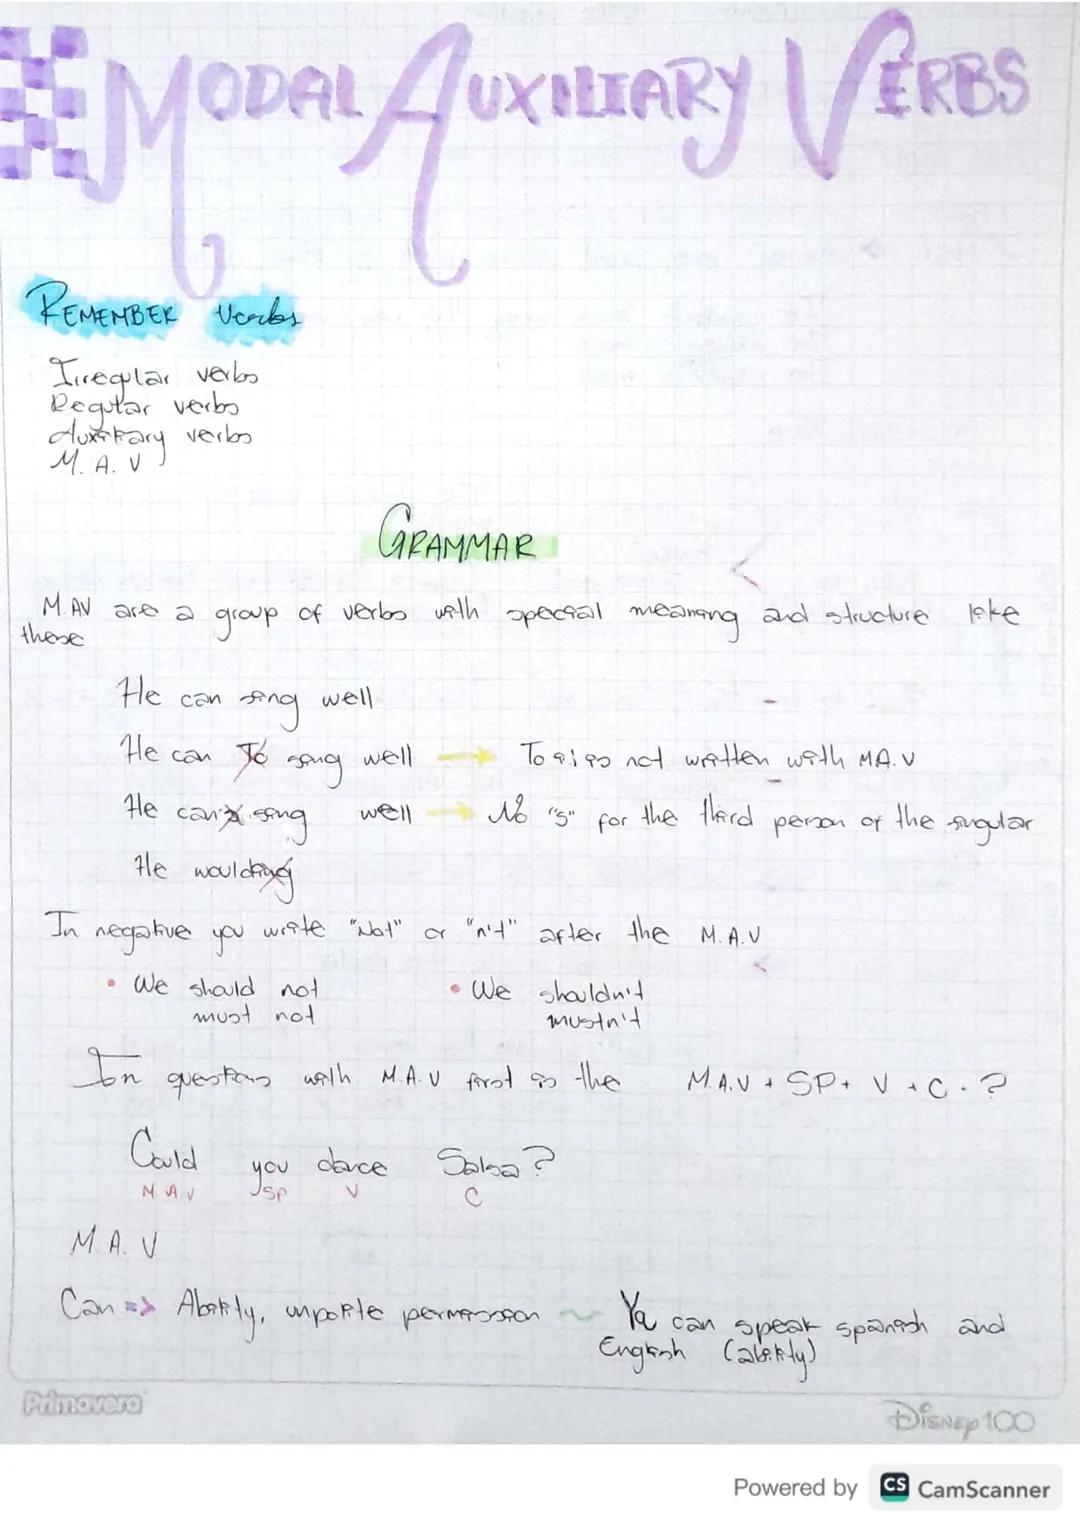 MODAL AUXILIARY VERBS
REMEMBER verbs
Irregular verbs
Regular verbs
Auxiliary verbs
M. A. V
GRAMMAR
M. AV are a group of verbs with special meaning and structure like
these
He can sing well
He can To sing well → To is not written with MA. V
He can's sing well → No "s" for the third person of the singular
He woulding
In negative you write "Not" or "n't" after the M.A.V
• We should not • We shouldn't
must not mustn't
In questions with M.A.V first is the M.A.V + SP + V + C. ?
Could you dance Salsa?
M A V SP V C
M. A. V
Can => Ability, unpolite permission ~ Ya can speak spanish and
English (ability)
Primavera
DISNEY 100
Powered by CS CamScanner